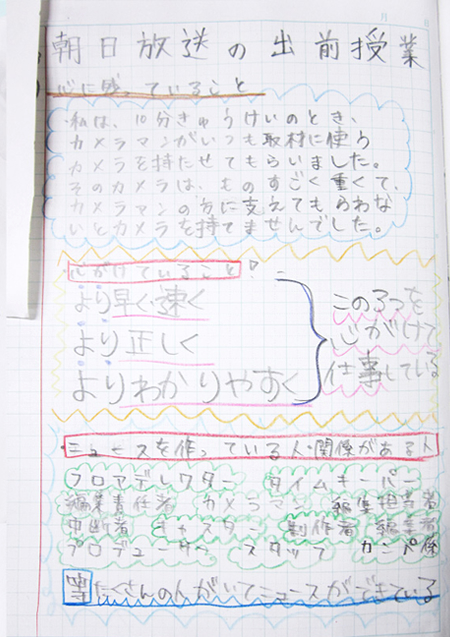 朝日放送の出前授業
心に残っていること
・私は、10分きゅうけいのとき、
カメラマンがいつも取材に使う
カメラを持たせてもらいました。
そのカメラは、ものすごく重くて、
カメラマンの方に支えてもらわな
いとカメラを持てませんでした。
心がけていること
より早く・速く
より正しく
よりわかりやすく
この3つを
心がけて
仕事している
・ニュースを作っている人・関係がある人
フロアディレクター タイムキーパー
編集責任者 カメラマン 編集担当者
中断者 キャスター 制作者 編業者
プロデューサー スタッフ カンペ係
等たくさんの人がいてニュースができている